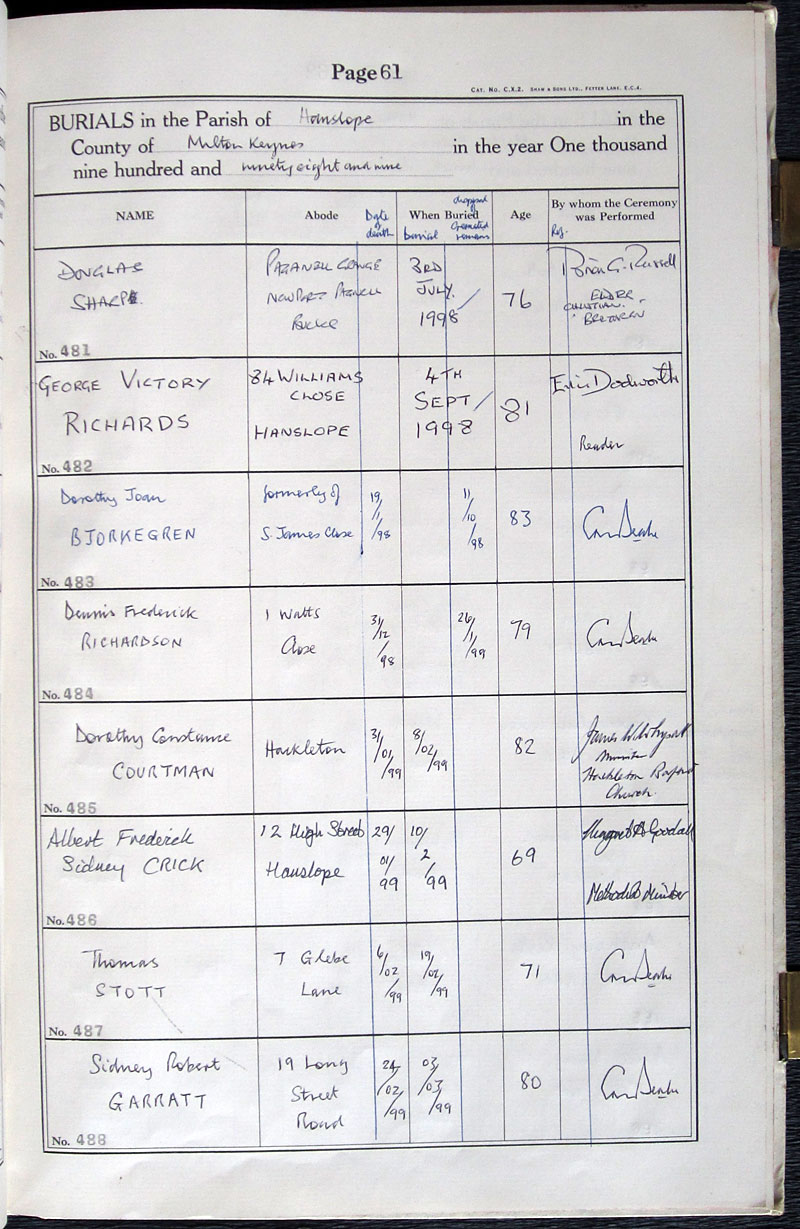 Page 61
CAT. NO. C.X.2. SHAW & SONS LTD., FETTER LANE, E.C.4.
BURIALS in the Parish of Hanslope in the
County of Milton Keynes in the year One thousand
nine hundred and ninety eight and nine
NAME Abode Date of death When Buried burial cremated remains Age By whom the Ceremony was Performed
DOUGLAS 3RD Brian G. Russell
SHARPE. NEWPORT PAGNELL JULY. 76 ELDER
BUCKS 1998 CHRISTIAN.
BRETHREN
No. 481
GEORGE VICTORY 84 WILLIAMS 4TH Eric Dodworth
CLOSE SEPT 81
RICHARDS HANSLOPE 1998
Reader
No. 482
Dorothy Joan formerly of 19/1/98 11/10/98 83
BJORKEGREN S. James Close
No. 483
Dennis Frederick 1 Watts 31/12/98 26/1/99 79
RICHARDSON Close
No. 484
Dorothy Constance Hackleton 31/01/99 8/02/99 82 James
COURTMAN Minister
Hackleton Baptist
Church.
No. 485
Albert Frederick 12 High Street 29/01/99 10/2/99 69 Margaret A Goodall
Sidney CRICK Hanslope
Methodist Minister
No. 486
Thomas 7 Glebe 6/02/99 19/02/99 71
STOTT Lane
No. 487
Sidney Robert 19 Long 24/02/99 03/03/99 80
GARRATT Street
Road
No. 488